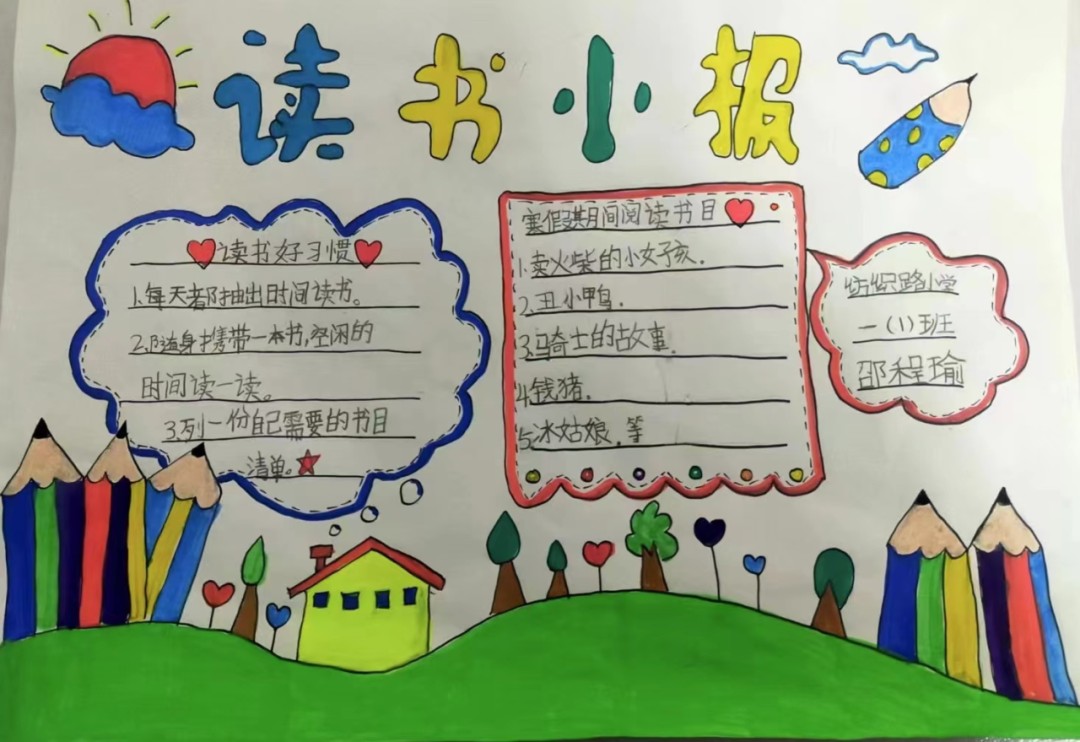 读书小报
读书好习惯
1.每天都抽出时间读书。
2.随身携带一本书,空闲的
时间读一读。
3.列一份自己需要的书目
清单。
寒假期间阅读书目
1.卖火柴的小女孩.
2.丑小鸭.
3.马奇士的故事.
4.钱猪.
5.冰姑娘.等
纺织路小学
一(1)班
邵程瑜